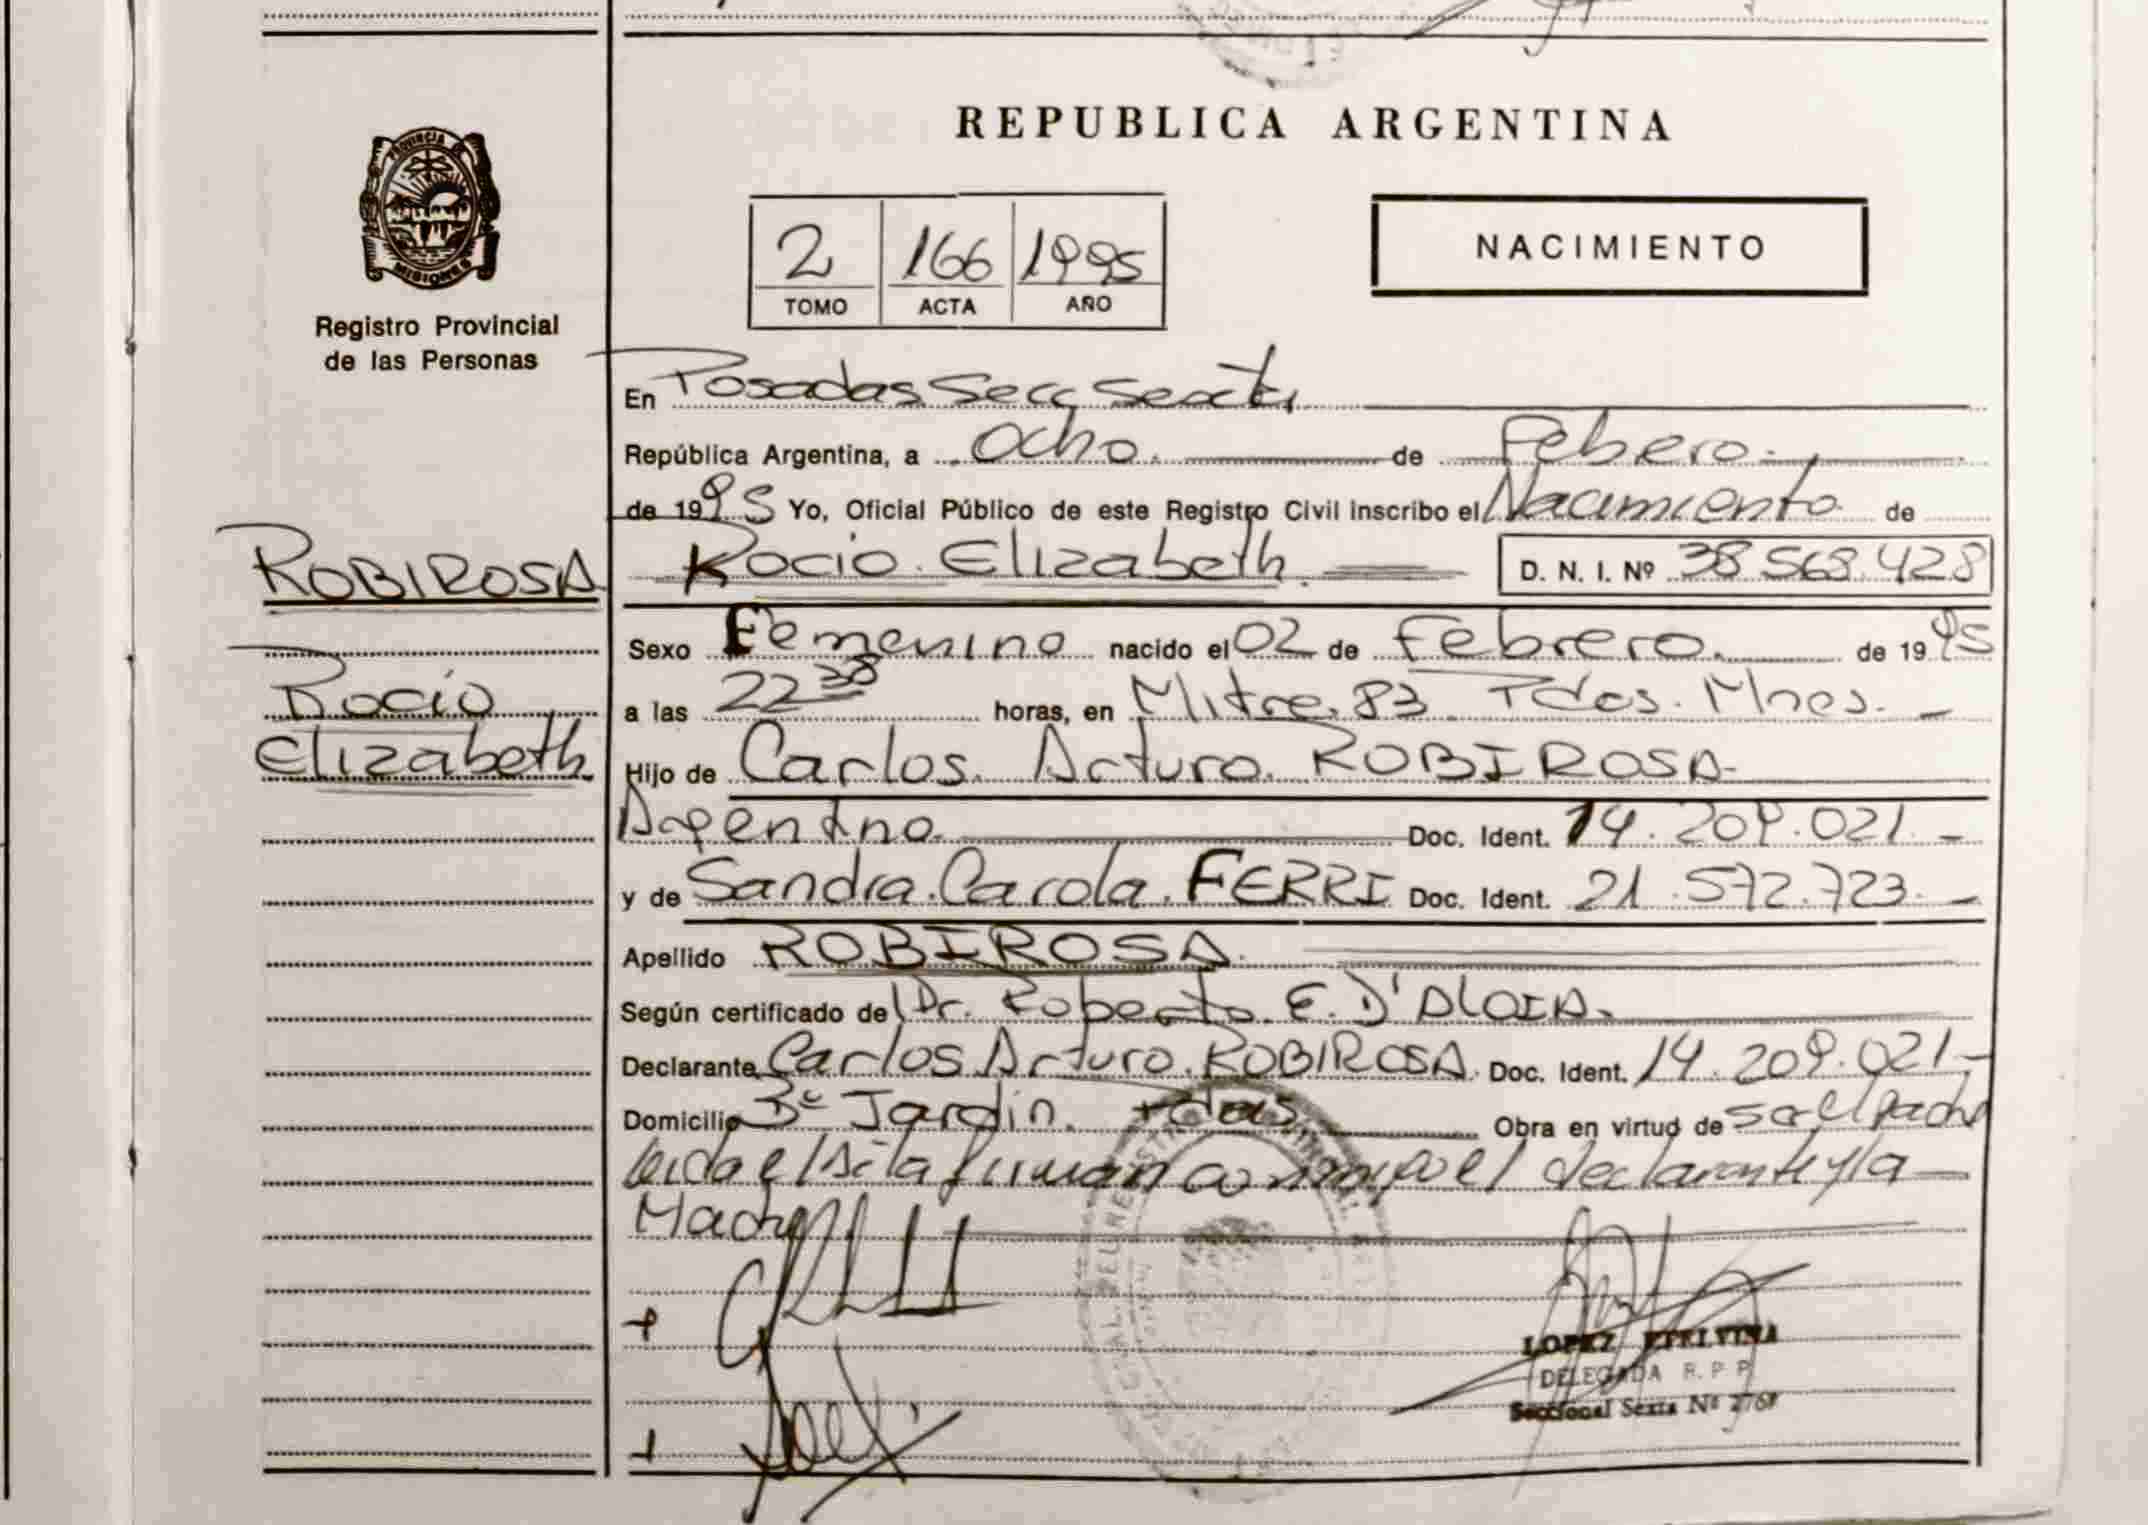 REPUBLICA ARGENTINA
PROVINCIA DE
MISIONES
Registro Provincial
de las Personas
2 166 1995
TOMO ACTA AÑO
NACIMIENTO
En Posadas Secc Sexta
República Argentina, a ocho. de Febero.
de 1995 Yo, Oficial Público de este Registro Civil inscribo el Nacimiento de
ROBIROSA
Rocio Elizabeth.
D. N. I. Nº 38.568.428
Rocio
Elizabeth
Sexo Femenino nacido el 02 de Febrero. de 1995
a las 22 38 horas, en Mitre. 83 Pdas. Mnes. -
Hijo de Carlos. Arturo. ROBIROSA
Argentino. Doc. Ident. 14.209.021. -
y de Sandra. Carola. FERRI Doc. Ident. 21.572.723. -
Apellido ROBIROSA.
Según certificado de Dr. Roberto. E. D'ALOIA.
Declarante Carlos Arturo. ROBIROSA. Doc. Ident. 14.209.021-
Domicilio Bº Jardin. Pdas. Obra en virtud de ser el padre
leida el Acta firman conmigo el declarante y la
Madre
LOPEZ ETELVINA
DELEGADA R. P. P.
Seccional Sexta Nº